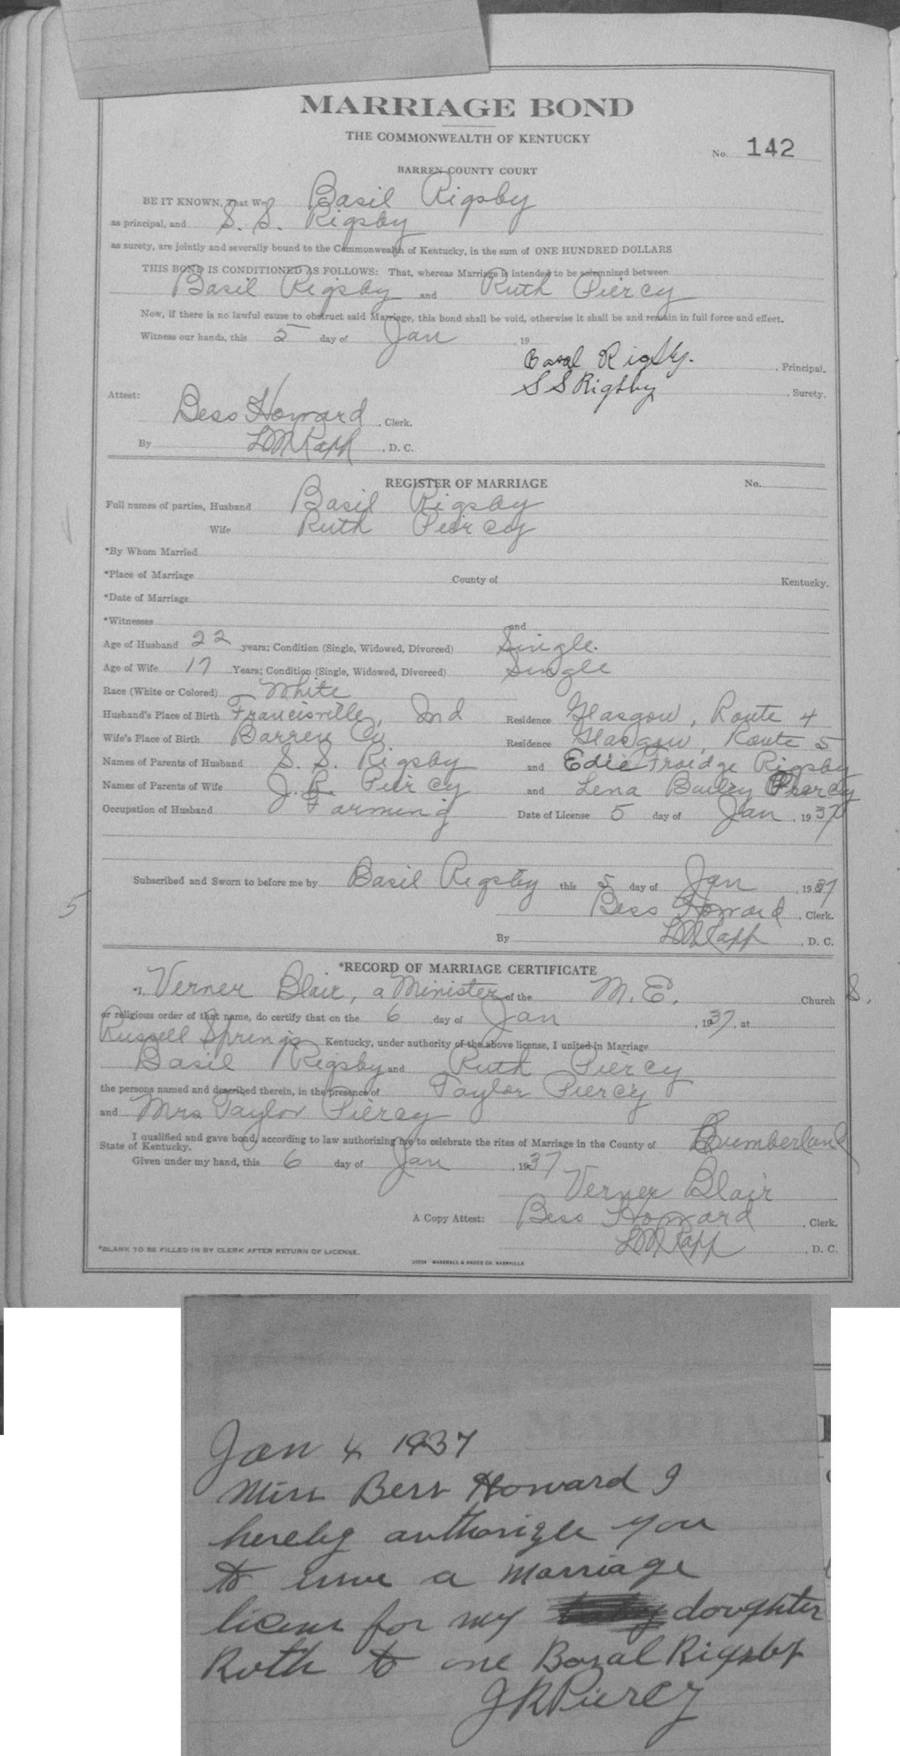 MARRIAGE BOND
THE COMMONWEALTH OF KENTUCKY
No. 142
BARREN COUNTY COURT
BE IT KNOWN, That We, Basil Rigsby
as principal, and S. S. Rigsby
as surety, are jointly and severally bound to the Commonwealth of Kentucky, in the sum of ONE HUNDRED DOLLARS
THIS BOND IS CONDITIONED AS FOLLOWS: That, whereas Marriage is intended to be solemnized between
Basil Rigsby and Ruth Piercy
Now, if there is no lawful cause to obstruct said Marriage, this bond shall be void, otherwise it shall be and remain in full force and effect.
Witness our hands, this 5 day of Jan , 19
Rigsby. , Principal.
S S Rigsby , Surety.
Attest:
Bess Howard , Clerk.
By , D. C.
REGISTER OF MARRIAGE No.
Full names of parties, Husband Basil Rigsby
Wife Ruth Piercy
*By Whom Married
*Place of Marriage County of Kentucky.
*Date of Marriage
*Witnesses and
Age of Husband 22 years; Condition (Single, Widowed, Divorced) Single.
Age of Wife 17 Years; Condition (Single, Widowed, Divorced) Single
Race (White or Colored) White
Husband's Place of Birth Francisville, Ind Residence Glasgow, Route 4
Wife's Place of Birth Barren Co Residence Glasgow, Route 5
Names of Parents of Husband S. S. Rigsby and Edie Froedge Rigsby
Names of Parents of Wife J. R. Piercy and Lena Bailey Piercy
Occupation of Husband Farming Date of License 5 day of Jan , 1937
Subscribed and Sworn to before me by Basil Rigsby this 5 day of Jan , 1937
5
Bess Howard , Clerk.
By , D. C.
*RECORD OF MARRIAGE CERTIFICATE
I, Verner Blair, a Minister of the M. E. Church S.
or religious order of that name, do certify that on the 6 day of Jan , 1937, at
Russell Springs Kentucky, under authority of the above license, I united in Marriage
Basil Rigsby and Ruth Piercy
the persons named and described therein, in the presence of Taylor Piercy
and Mrs Taylor Piercy
I qualified and gave bond, according to law authorizing me to celebrate the rites of Marriage in the County of Cumberland
State of Kentucky.
Given under my hand, this 6 day of Jan , 1937
Verner Blair
A Copy Attest: Bess Howard , Clerk.
, D. C.
*BLANK TO BE FILLED IN BY CLERK AFTER RETURN OF LICENSE.
Jan 4 1937
Miss Bess Howard I
hereby authorize you
to issue a marriage
licens for my doughter
Ruth to one Basal Rigsby
J R Piercy